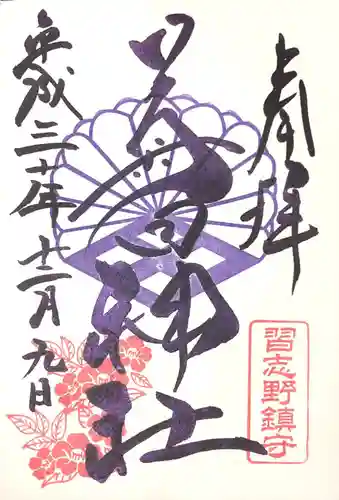 奉拝
神社
平成三十年十二月九日
習志野鎮守